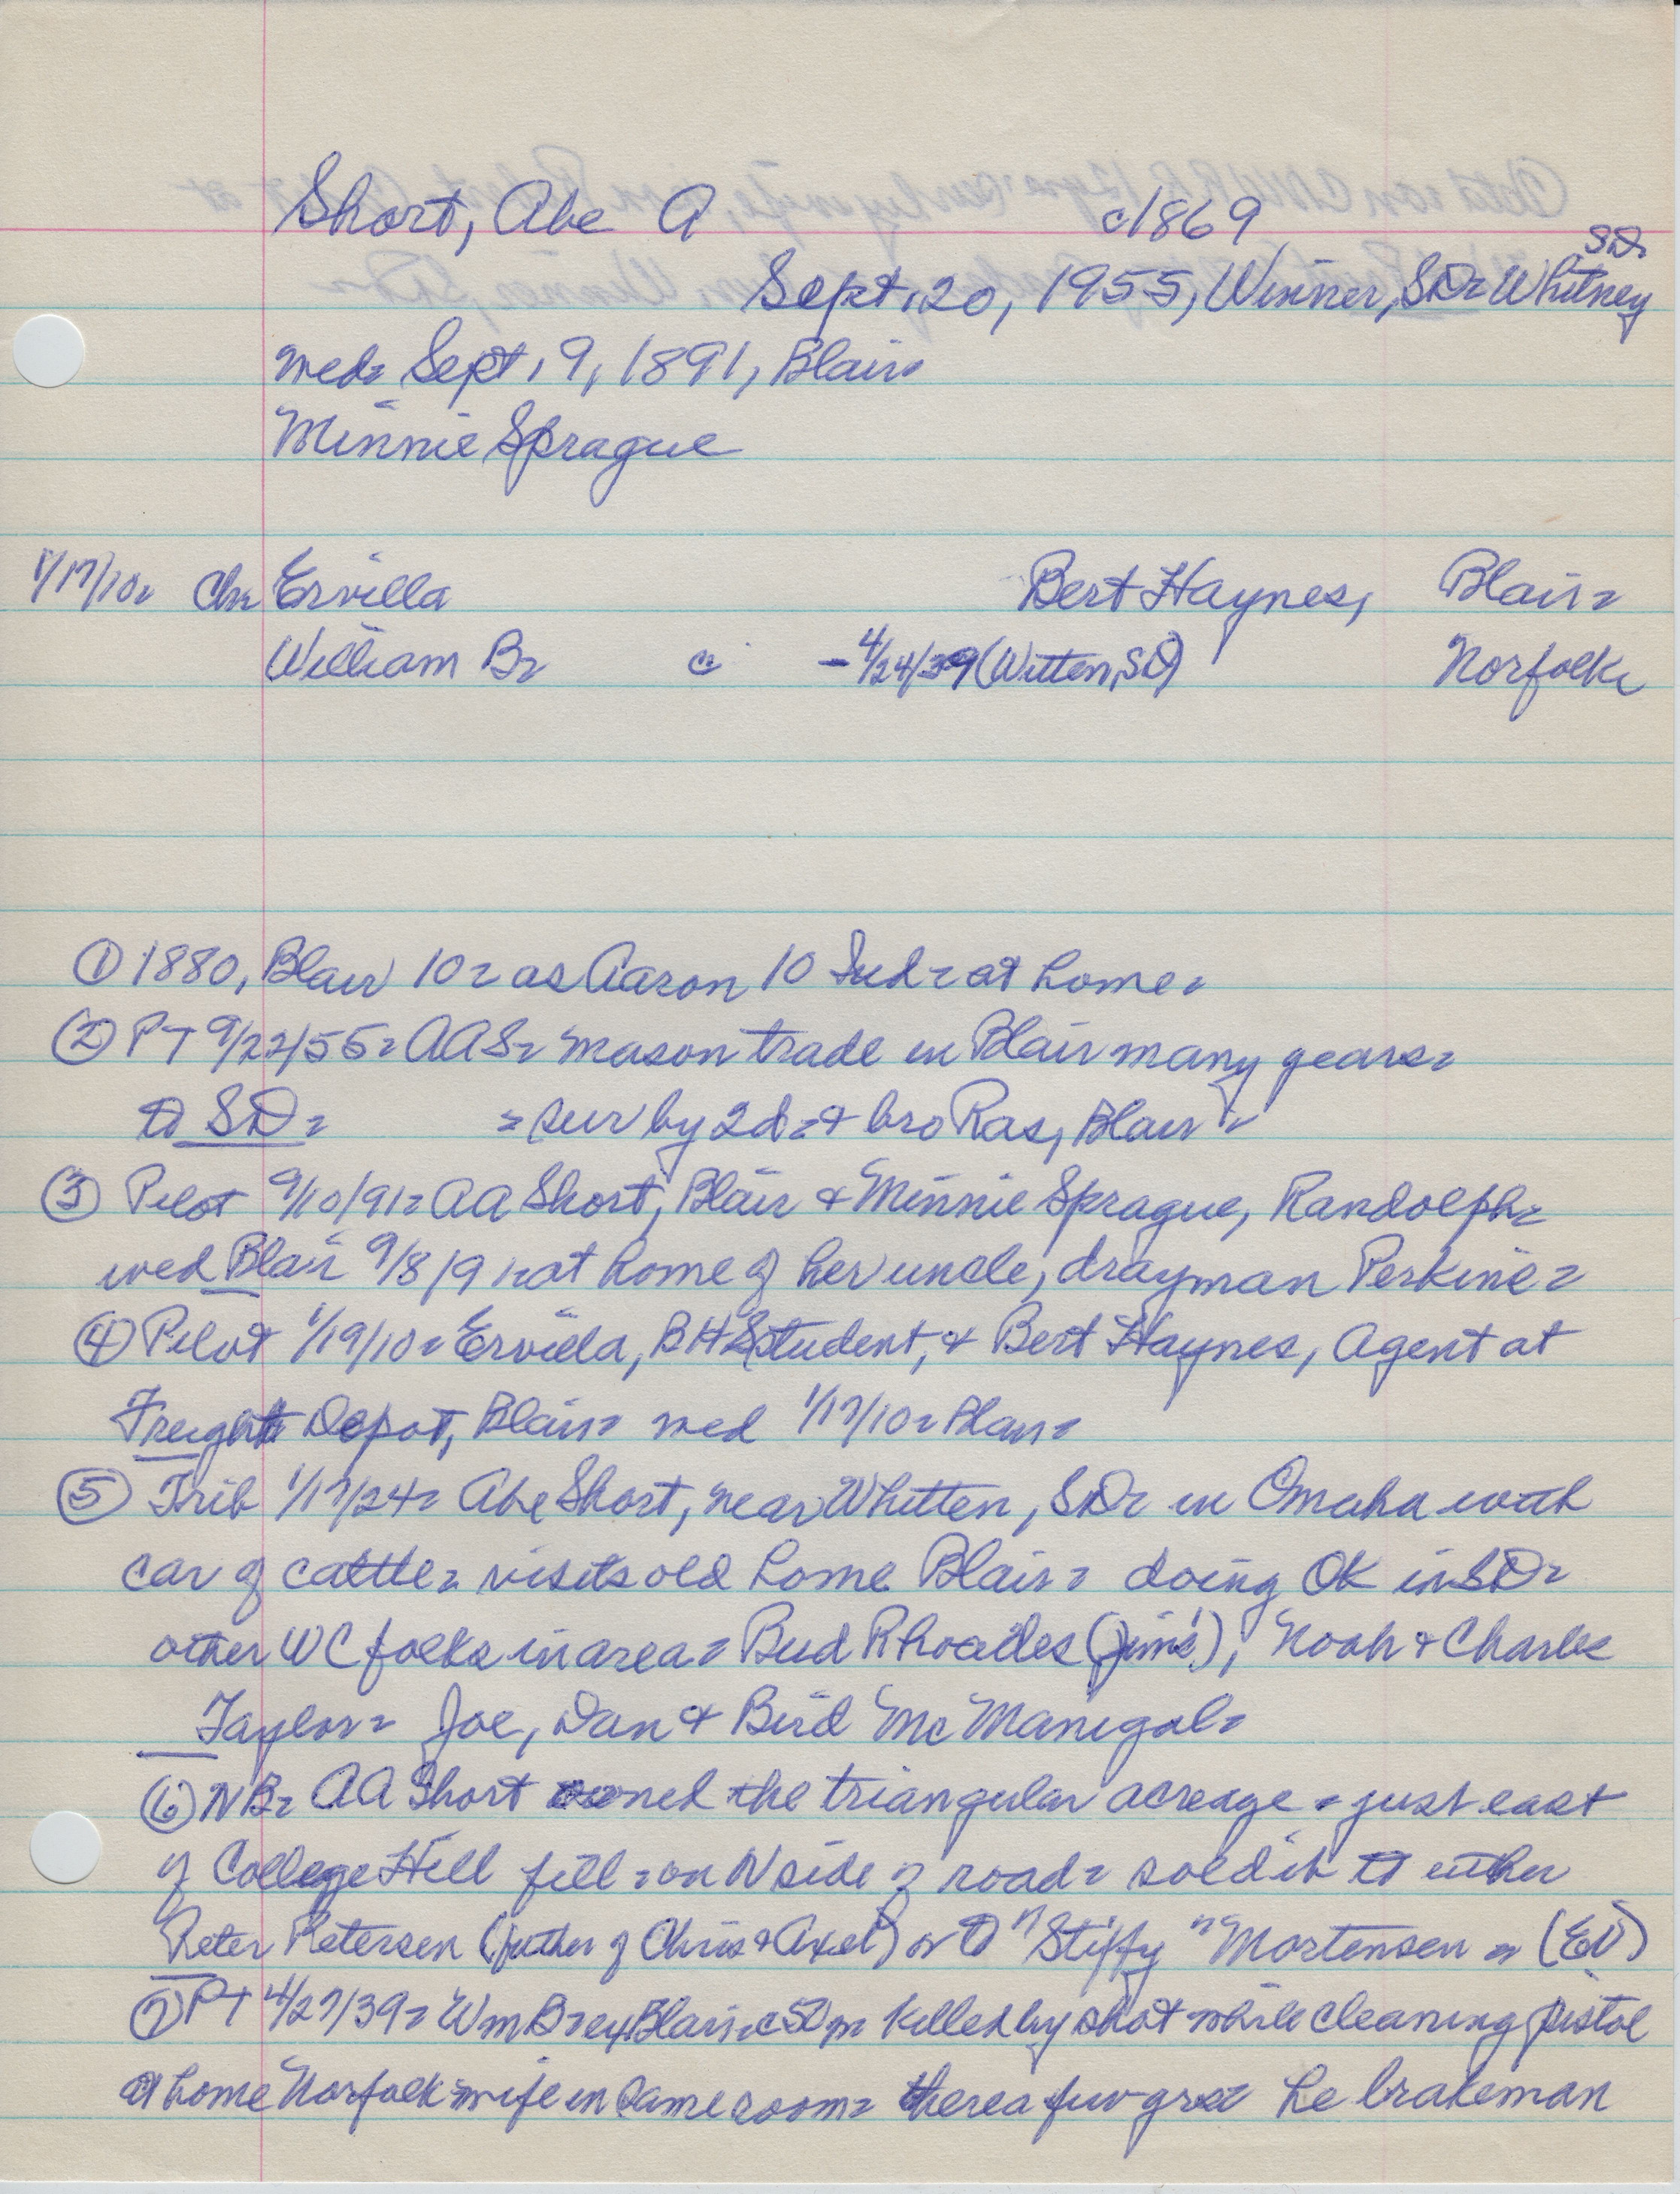 Short, Abe A c1869
SD.
Sept. 20, 1955, Winner, SD. Whitney
med. Sept. 9, 1891, Blair.
Minnie Sprague
1/17/10. Ch. Ervilla Bert Haynes, Blair.
William B. c - 4/24/39 (Witten, SD) Norfolk
① 1880, Blair 10. as Aaron 10 Ind. at home.
② PT 9/22/55. AAS. mason trade in Blair many years.
to SD. = sur by 2d. + bro Ras, Blair.
③ Pilot 9/10/91. AA Short, Blair + Minnie Sprague, Randolph.
wed Blair 9/8/91. at home of her uncle, drayman Perkins.
④ Pilot 1/19/10. Ervilla, BHS student, + Bert Haynes, Agent at
Freight Depot, Blair. med 1/17/10. Blair.
⑤ Trib 1/17/24. Abe Short, near Whitten, SD. in Omaha with
car of cattle. visits old home Blair. doing OK in SD.
other WC folks in area. Bud Rhoades (Jim's!), Noah + Charles
Taylor. Joe, Dan + Bird McManigal.
⑥ NB. AA Short owned the triangular acreage. just east
of College Hill fill. on N side of road. sold it to either
Peter Petersen (father of Chris + Axel) or to "Stiffy" Mortensen (EU)
⑦ PT 4/27/39. Wm B. ex Blair. c50 m. killed by shot while cleaning pistol
at home Norfolk wife in same room. there a few yrs. he brakeman